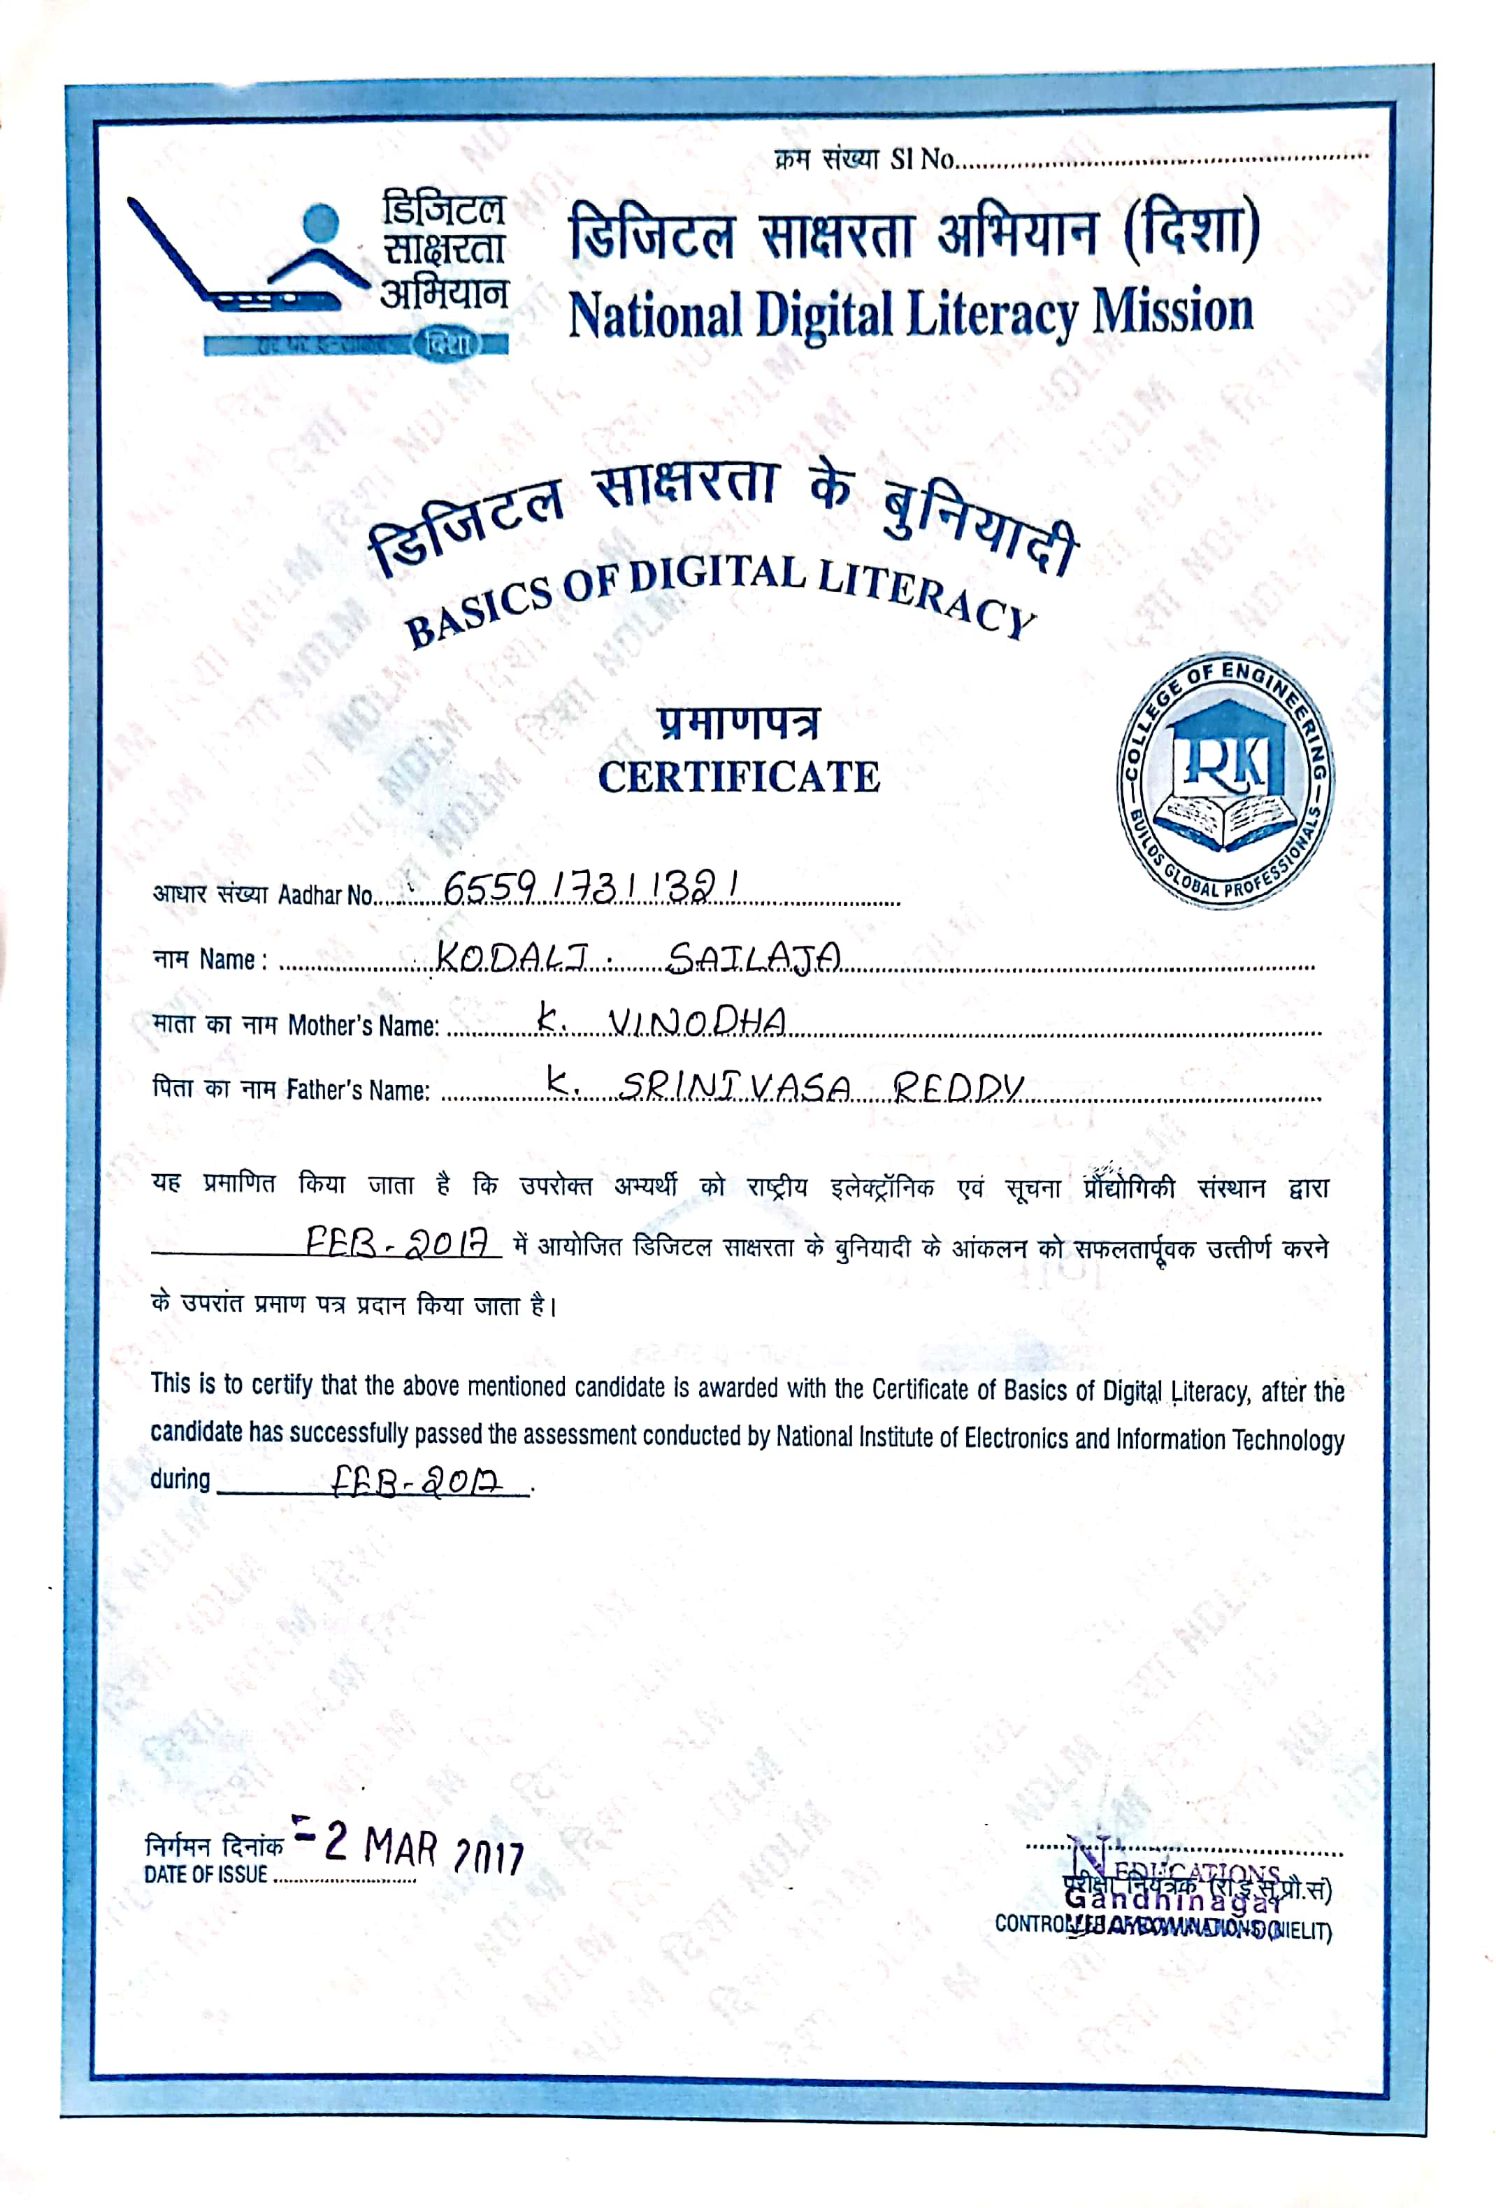 क्रम संख्या Sl No.
डिजिटल
साक्षरता
अभियान
दिशा
डिजिटल साक्षरता अभियान (दिशा)
National Digital Literacy Mission
डिजिटल साक्षरता के बुनियादी
BASICS OF DIGITAL LITERACY
प्रमाणपत्र
CERTIFICATE
COLLEGE OF ENGINEERING
RK
BUILDS GLOBAL PROFESSIONALS
आधार संख्या Aadhar No. 655917311321
नाम Name : KODALI. SAILAJA
माता का नाम Mother's Name: K. VINODHA
पिता का नाम Father's Name: K. SRINIVASA REDDY
यह प्रमाणित किया जाता है कि उपरोक्त अभ्यर्थी को राष्ट्रीय इलेक्ट्रॉनिक एवं सूचना प्रौद्योगिकी संस्थान द्वारा
FEB-2017 में आयोजित डिजिटल साक्षरता के बुनियादी के आंकलन को सफलतार्पूवक उत्तीर्ण करने
के उपरांत प्रमाण पत्र प्रदान किया जाता है।
This is to certify that the above mentioned candidate is awarded with the Certificate of Basics of Digital Literacy, after the
candidate has successfully passed the assessment conducted by National Institute of Electronics and Information Technology
during FEB-2017.
निर्गमन दिनांक - 2 MAR 2017
DATE OF ISSUE
N EDUCATIONS
परीक्षा नियंत्रक (रा.इ.सू.प्रौ.सं)
Gandhinagar
CONTROLLER OF EXAMINATIONS (NIELIT)